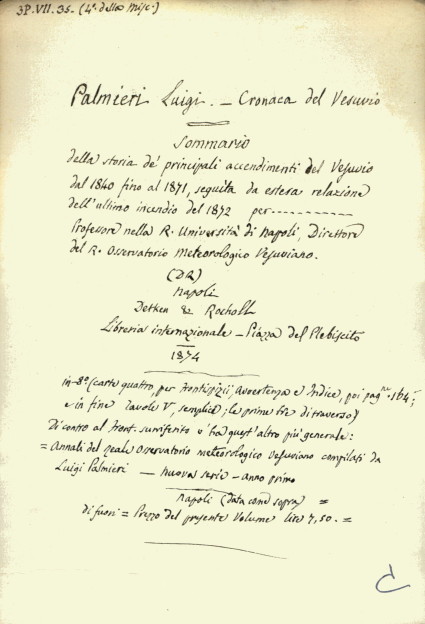 3P.VII.35. (4ª della Misc.)
Palmieri Luigi. — Cronaca del Vesuvio
Sommario
della storia de' principali accendimenti del Vesuvio
dal 1840 fino al 1871, seguita da estesa relazione
dell'ultimo incendio del 1872 per----------
Professore nella R. Università di Napoli, Direttore
del R. Osservatorio Meteorologico Vesuviano.
(DR)
Napoli
Detken & Rocholl
Libreria internazionale — Piazza del Plebiscito
1874
in-8º (carte quattro, per frontispizii, Avvertenza e Indice, poi pagne 164;
e in fine Tavole V, semplici; le prime tre di traverso)
Di contro al front. surriferito v'ha quest'altro più generale:
= Annali del Reale Osservatorio meteorologico Vesuviano compilati da
Luigi Palmieri — nuova serie - anno primo
Napoli (data come sopra) =
di fuori = Prezzo del presente Volume lire 7,50. =